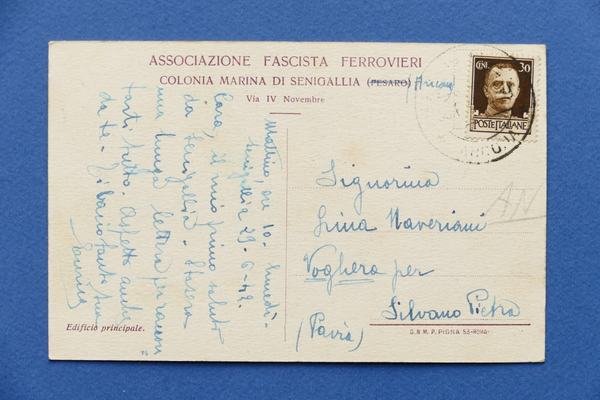 ASSOCIAZIONE FASCISTA FERROVIERI
COLONIA MARINA DI SENIGALLIA (PESARO) Ancona
Via IV Novembre
CENT. 30
POSTE ITALIANE
ANCONA
AN
Mattino, ore 10 - lunedì -
Senigallia 29.6.42.
Cara, il mio primo saluto
da Senigallia. Stasera
una lunga lettera per raccon=
tarti tutto. Aspetto anche
da te. Ti bacio tanto tua
Signorina
Lina Maveriani
Voghera per
Silvano Pietra
(Pavia)
Edificio principale.
G.N.M.P. PIGNA 53-ROMA-